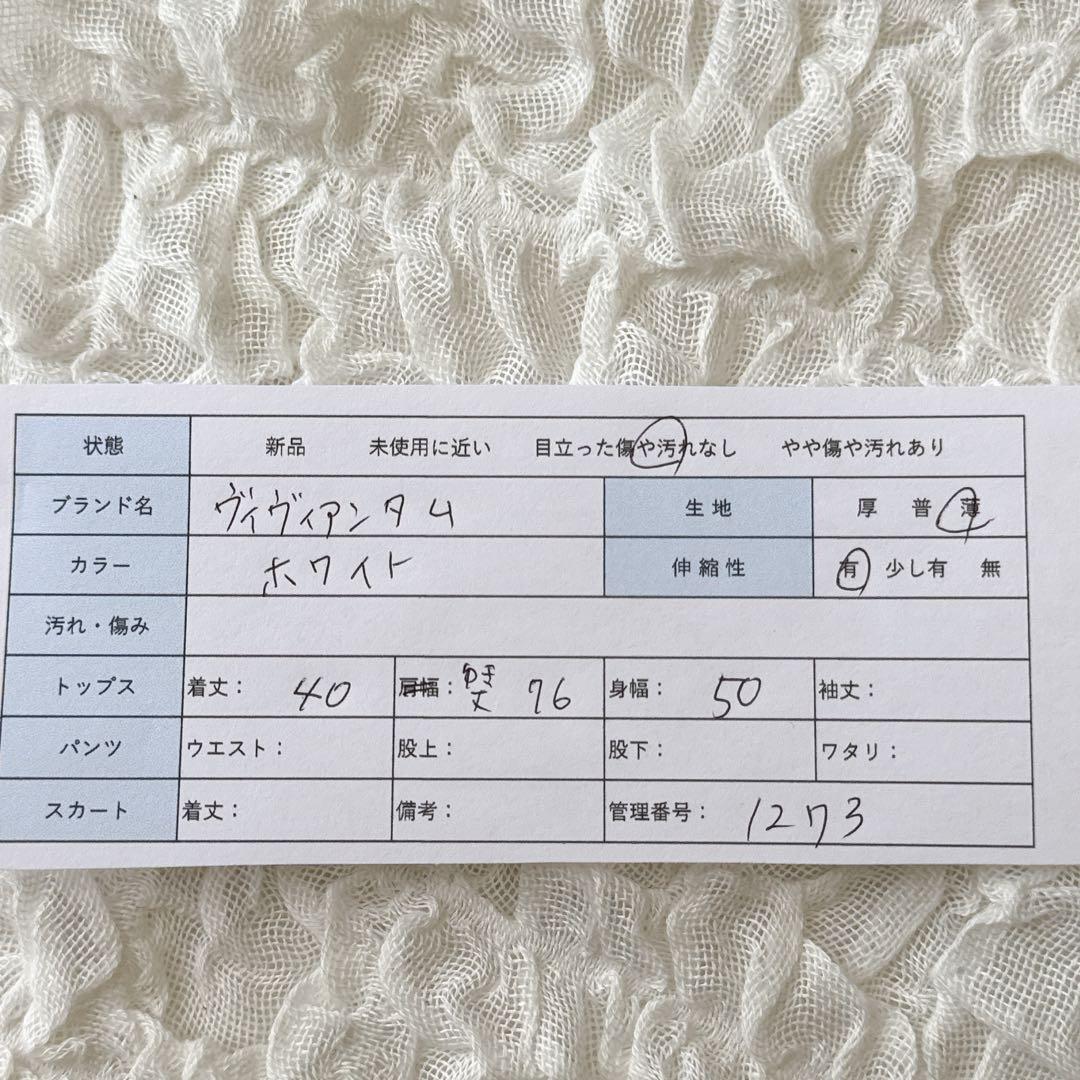 状態 新品 未使用に近い 目立った傷や汚れなし やや傷や汚れあり
ブランド名 ヴィヴィアンタム 生地 厚 普 薄
カラー ホワイト 伸縮性 有 少し有 無
汚れ・傷み
トップス 着丈： 40 肩幅： ゆき丈 76 身幅： 50 袖丈：
パンツ ウエスト： 股上： 股下： ワタリ：
スカート 着丈： 備考： 管理番号： 1273